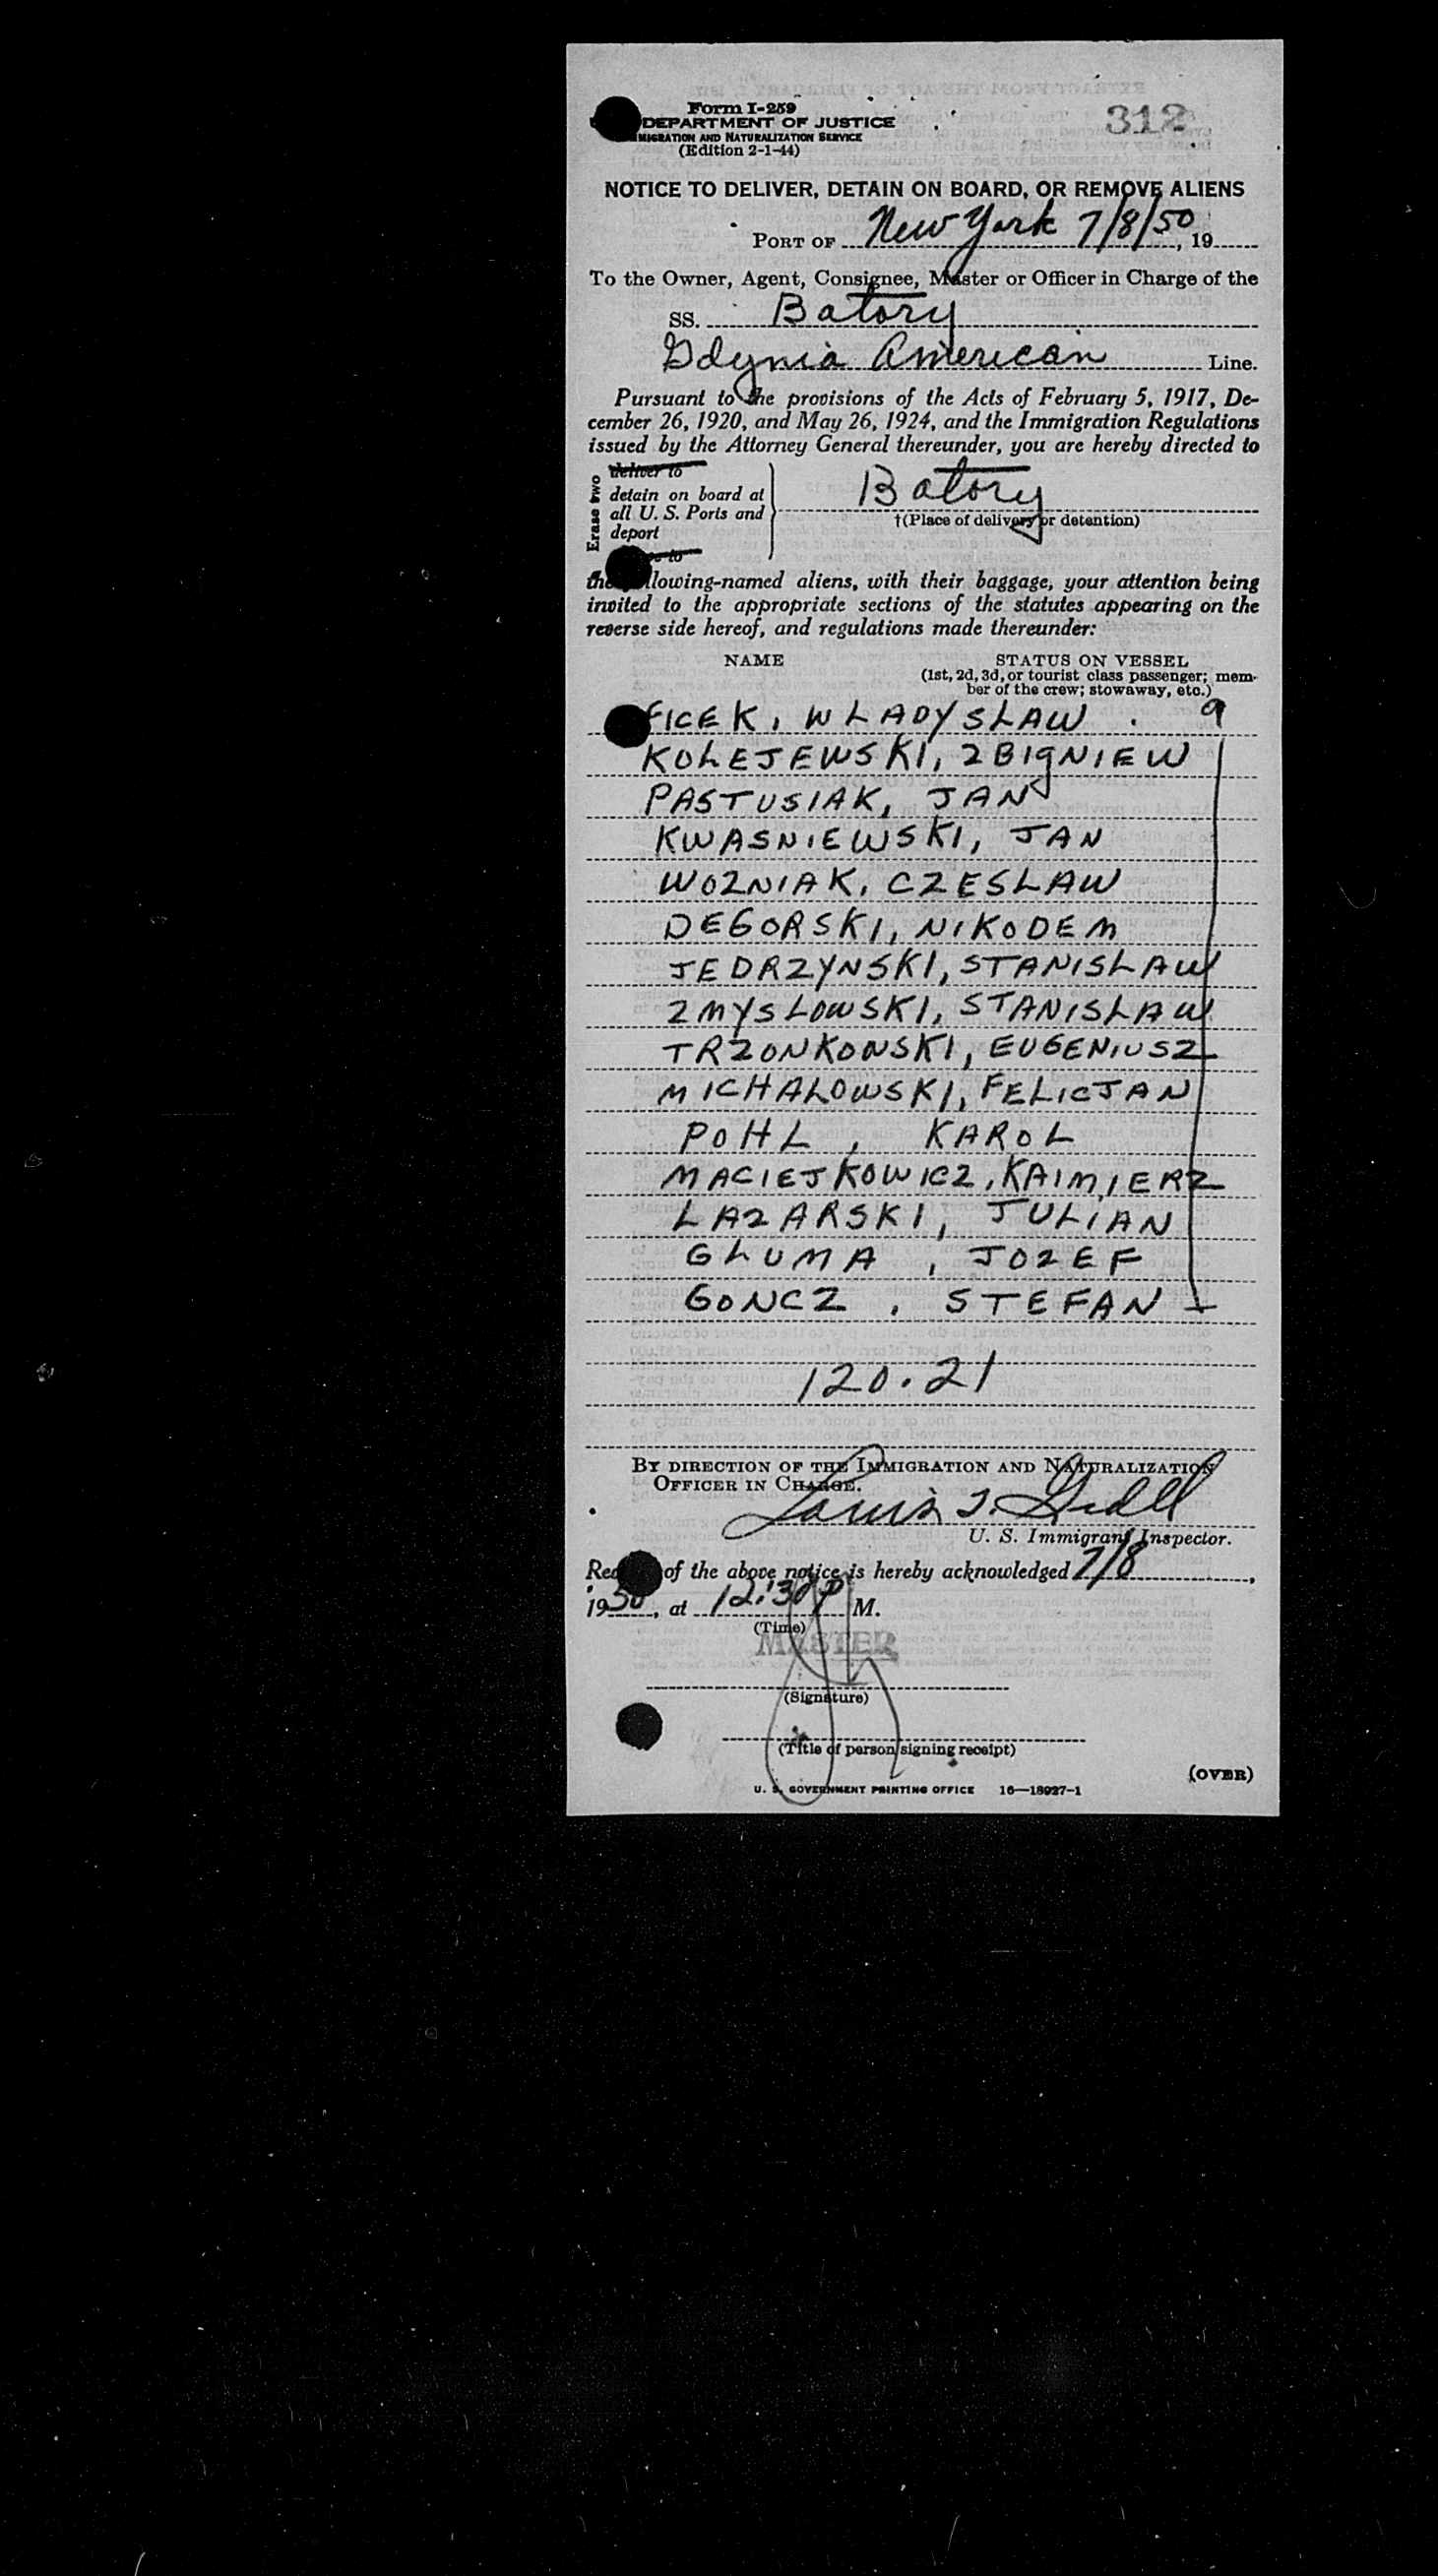 Form I-259
312
DEPARTMENT OF JUSTICE
MIGRATION AND NATURALIZATION SERVICE
(Edition 2-1-44)
NOTICE TO DELIVER, DETAIN ON BOARD, OR REMOVE ALIENS
PORT OF New York 7/8/50, 19
To the Owner, Agent, Consignee, Master or Officer in Charge of the
SS. Batory
Gdynia American Line.
Pursuant to the provisions of the Acts of February 5, 1917, De-
cember 26, 1920, and May 26, 1924, and the Immigration Regulations
issued by the Attorney General thereunder, you are hereby directed to
Erase two
deliver to
detain on board at
all U. S. Ports and
deport
to
Batory
†(Place of delivery or detention)
the llowing-named aliens, with their baggage, your attention being
invited to the appropriate sections of the statutes appearing on the
reverse side hereof, and regulations made thereunder:
NAME STATUS ON VESSEL
(1st, 2d, 3d, or tourist class passenger; mem-
ber of the crew; stowaway, etc.)
FICEK, WLADYSLAW
KOLEJEWSKI, ZBIGNIEW
PASTUSIAK, JAN
KWASNIEWSKI, JAN
WOZNIAK, CZESLAW
DEGORSKI, NIKODEM
JEDRZYNSKI, STANISLAW
ZMYSLOWSKI, STANISLAW
TRZONKOWSKI, EUGENIUSZ
MICHALOWSKI, FELICJAN
POHL, KAROL
MACIEJKOWICZ, KAIMIERZ
LAZARSKI, JULIAN
GLUMA, JOZEF
GONCZ, STEFAN
120.21
BY DIRECTION OF THE IMMIGRATION AND NATURALIZATION
OFFICER IN CHARGE.
Louis
U. S. Immigrant Inspector.
Rec of the above notice is hereby acknowledged 7/8,
1950, at 12:30 P M.
(Time)
MASTER
(Signature)
(Title of person signing receipt)
(OVER)
U. S. GOVERNMENT PRINTING OFFICE 16—18927-1